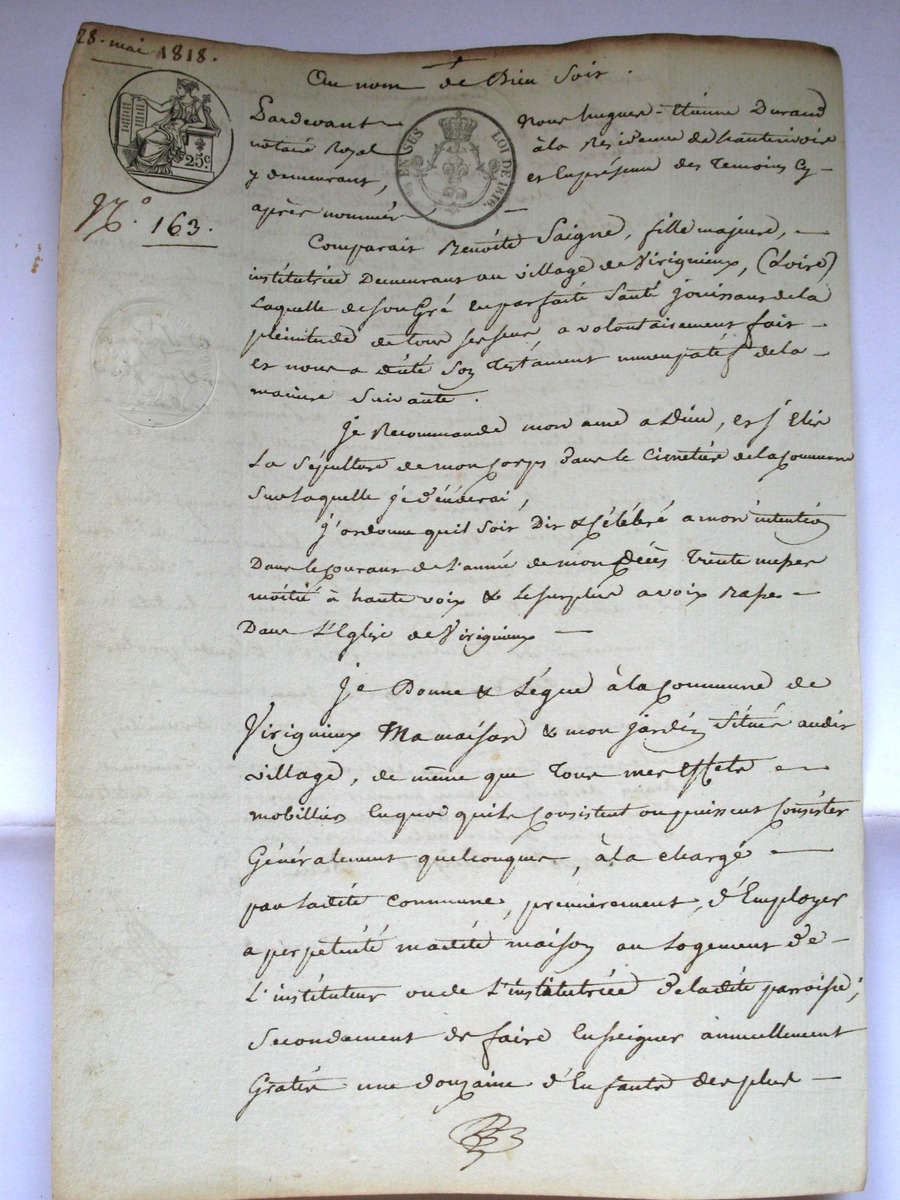 28. mai 1818.
Au nom de Dieu Soit.
25c
EN SUS
LOI DE 1816.
N.º 163.
Pardevant Nous hugues-Etienne Durand
notaire Royal à la Residence de hauterivoire
y demeurant, et En présence des Temoins Cy-
après nommés —
Comparait Benoite Saigne, fille majeure, —
institutrice Demeurant au village de Virignieux, (Loire)
Laquelle de Son Gré en parfaite Santé Jouissant de la
plénitude de tous ses sens a volontairement fait —
et nous a dicté Son Testament nuncupatif de la —
maniere Suivante.
Je Recommande mon ame a Dieu, et J'Elis
La Sépulture de mon Corps dans le Cimetiere de la Commune
Sur laquelle je décéderai,
J'ordonne quil Soit Dit & Célébré a mon intention
Dans le Courant de L'année de mon Décès Trente messes
moitié à haute voix & Le Surplus a voix Basse —
Dans L'Eglise de Virignieux —
Je Donne & Légue à la Commune de
Virignieux Ma maison & mon jardin Situés audit
village, de même que Tous mes Effets —
mobilliers En quoi quils Consistent ou puissent Consister
Généralement quelconques, à la charge —
par Ladite Commune, premièrement, d'Employer
a perpétuité madite maison au Logement de —
L'instituteur ou de L'institutrice de ladite parroisse;
Secondament de faire Enseigner annuellement
Gratis une douzaine d'Enfants des plus —